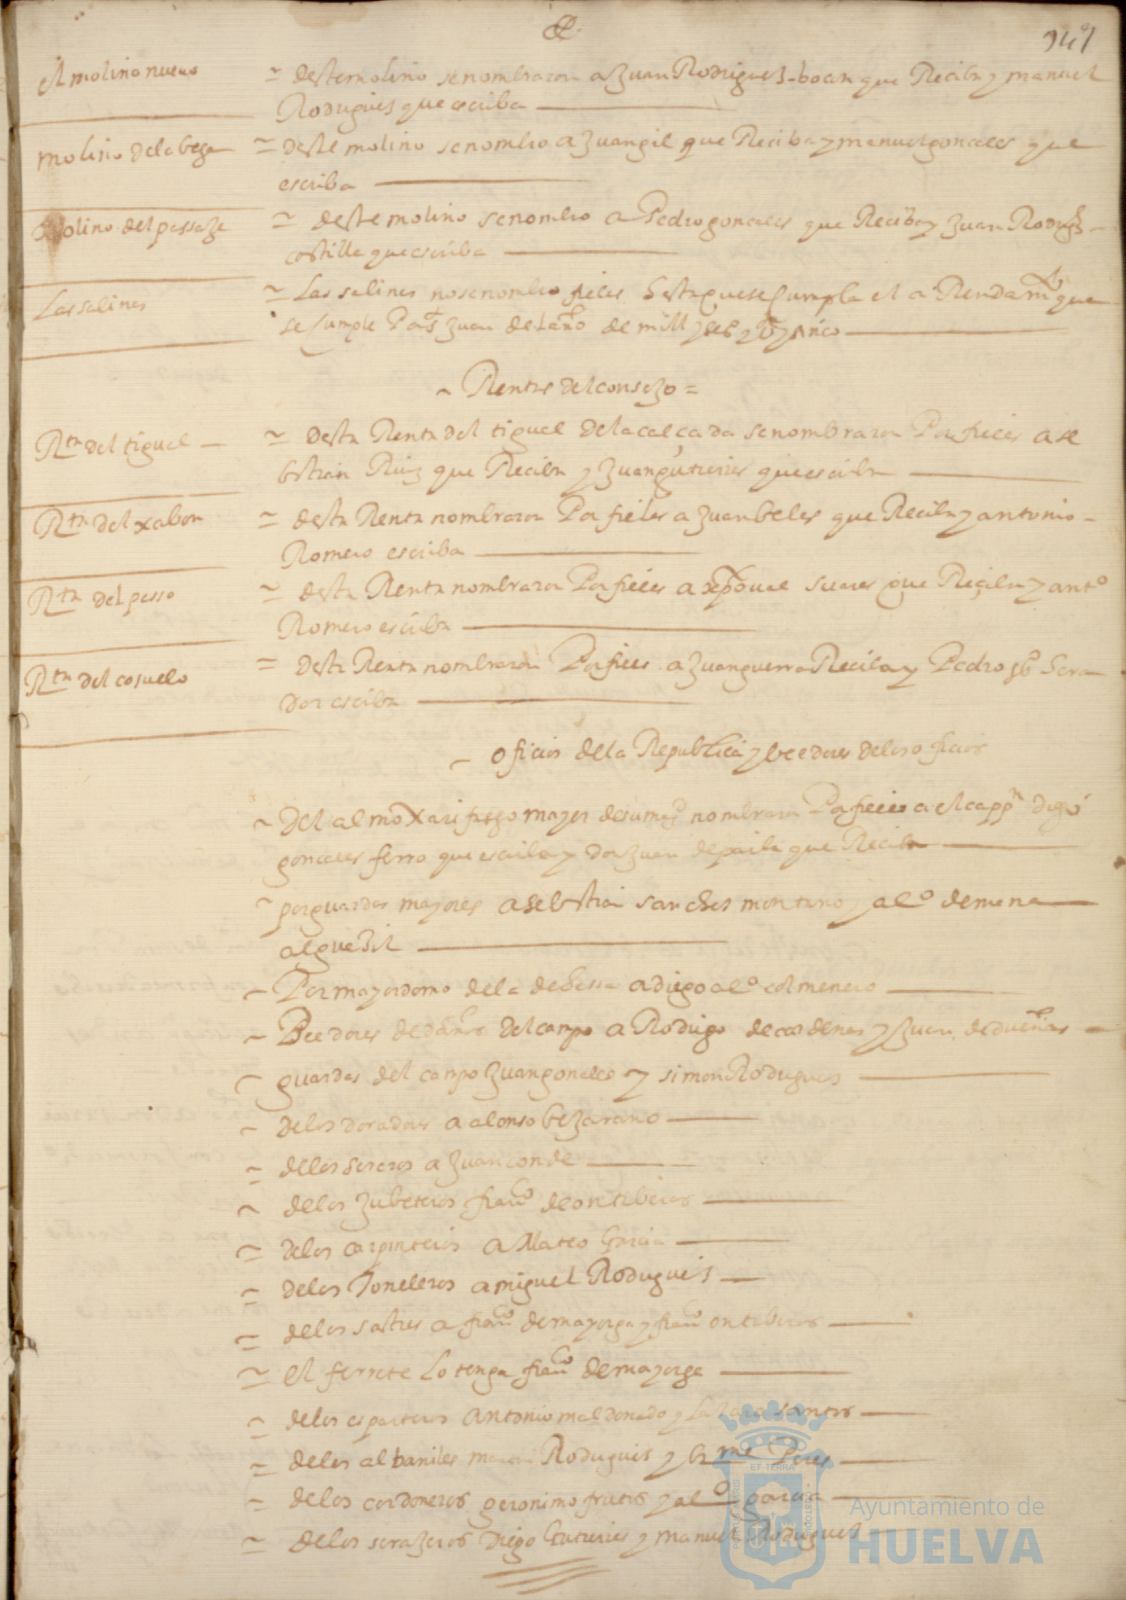 947
El molino nuevo
~ deste molino senombraron a Zuan Rodrigues que Reciba y manuel
Rodrigues que escriba
molino dela bega
~ deste molino senombro a Zuangil que Reciba y manuel gonçales que
escriba
Molino del passaze
~ deste molino senombro a Pedro gonçales que Reciba y Zuan Rodrigs
costilla que escriba
Las salines
~ Las salines nosenombro fieles hasta que se Cumpla el a Rendamto que
se Cumple Pa St Zuan de
~ Rentas del consezo =
Rta del tiguel
~ desta Renta del tiguel dela calçada senombraron Pa fieles a se
bstian Ruiz que Reciba y Zuan gutierres que escriba
Rta del xabon
= desta Renta nombraron Pa fieles a Zuan beles que Reciba y antonio
Romero escriba
Rta del pesso
~ desta Renta nombraron Pa fieles a xpoual suares que Reçiba y anto
Romero escriba
Rta del cosuelo
= Desta Renta nombraron Pa fieles a Zuan guerra Reciba y Pedro
dor escriba
~ oficios dela Republica y beedores delos oficios
~ Del almoxarifasgo mayor desumagd nombraron Pa fieles a el cappn diego
gonçales ferro que escriba y Don Zuan depaila que Reciba
~ por guardas mayores a Sebstian sanches montano y alo de mena
alguesil
~ Por mayordomo de la dehessa a diego alo colmenero
~ Beedores de daños del campo a Rodrigo de cardenas y Zuan de dueñas
~ guardas del campo Zuan gonçales y simon Rodrigues
~ delos doradores a alonso bezarano
= delos sereros a Zuan conde
~ delos Zubeteros franco de ontiberos
= delos carpinteros a Mateo Garcia
= delos Toneleros a miguel Rodrigues
= delos sastres a franco de mayorga y franco ontiberos
~ el ferrete Lo tenga franco de mayorga
= delos esparteros antonio maldonado y santos
= delos albaniles Rodrigues y Peres
= delos cordoneros geronimo frutos y alo garcia
= delos serazeros Diego Gutierres y manuel Rodrigues
ET TERRÆ
Ayuntamiento de
HUELVA